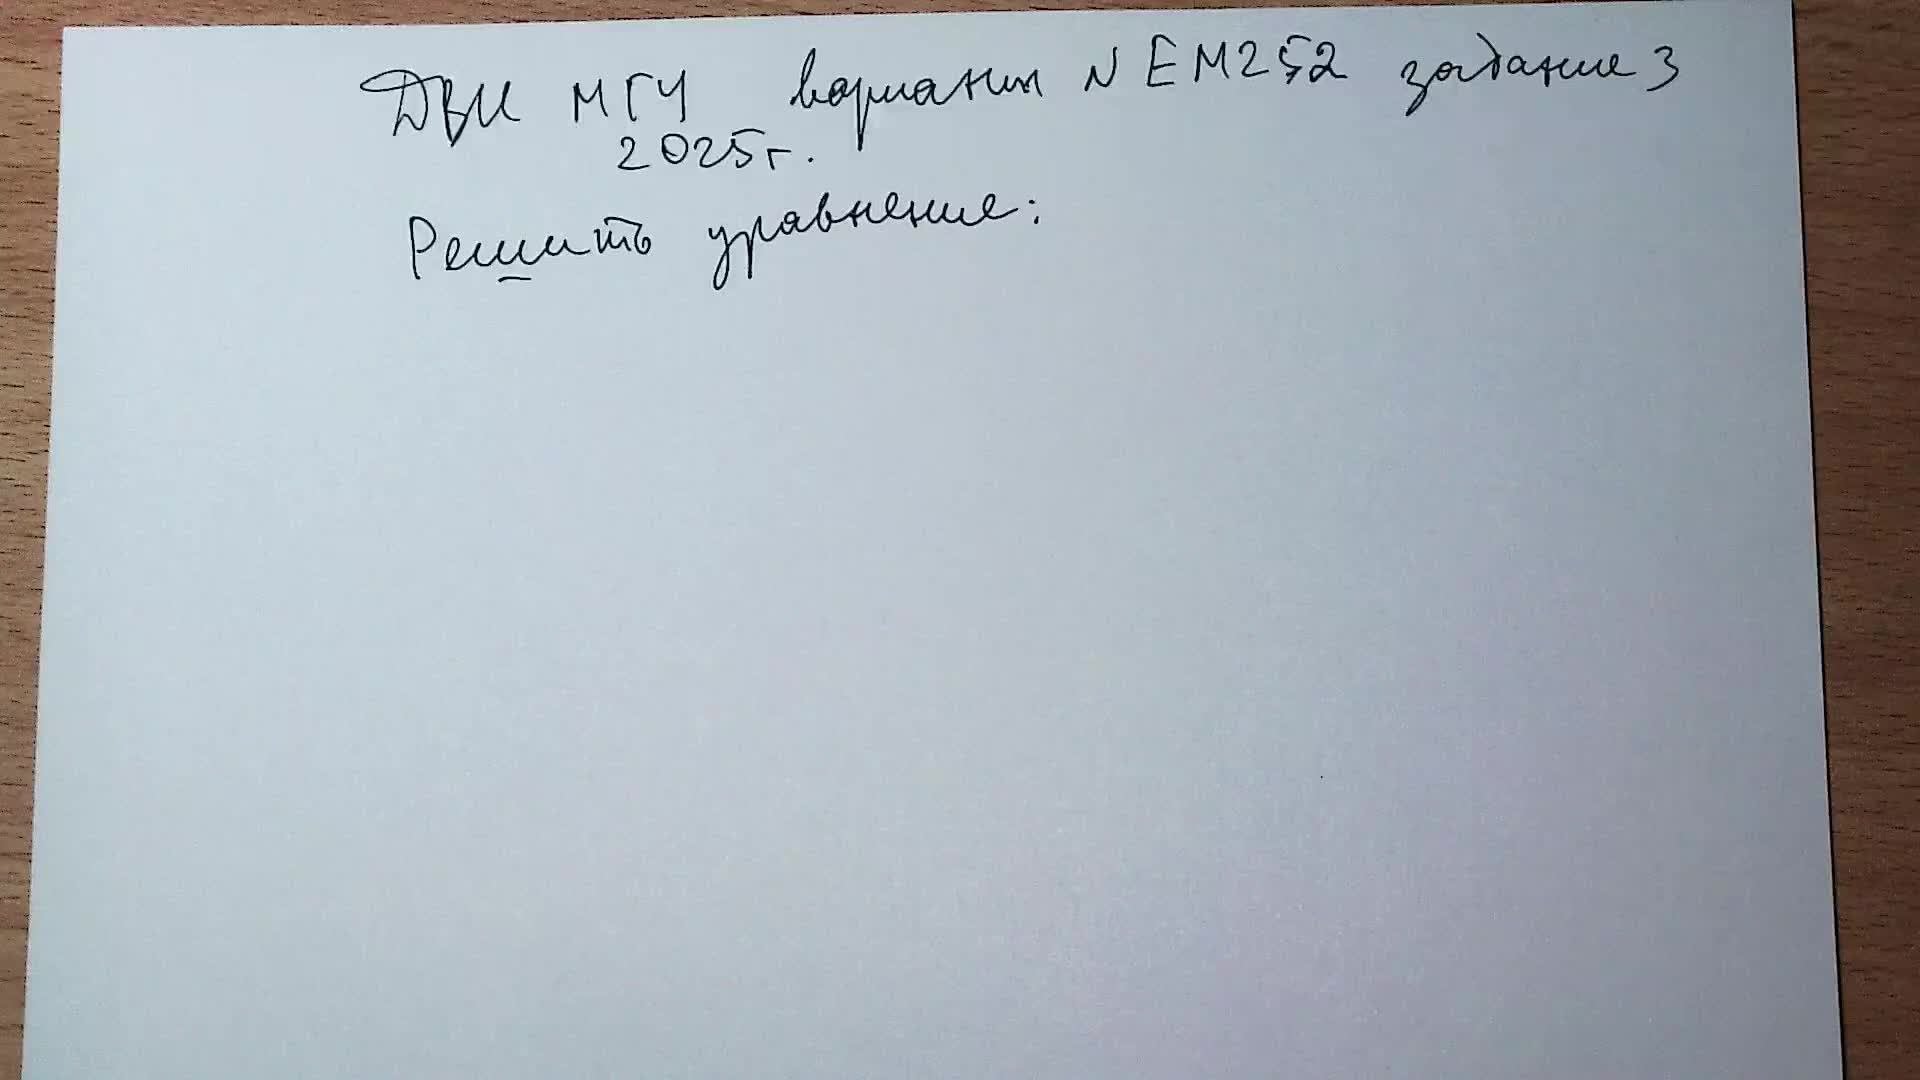 ДВИ МГУ вариант N EM252 задание 3
2025г.
Решить уравнение: